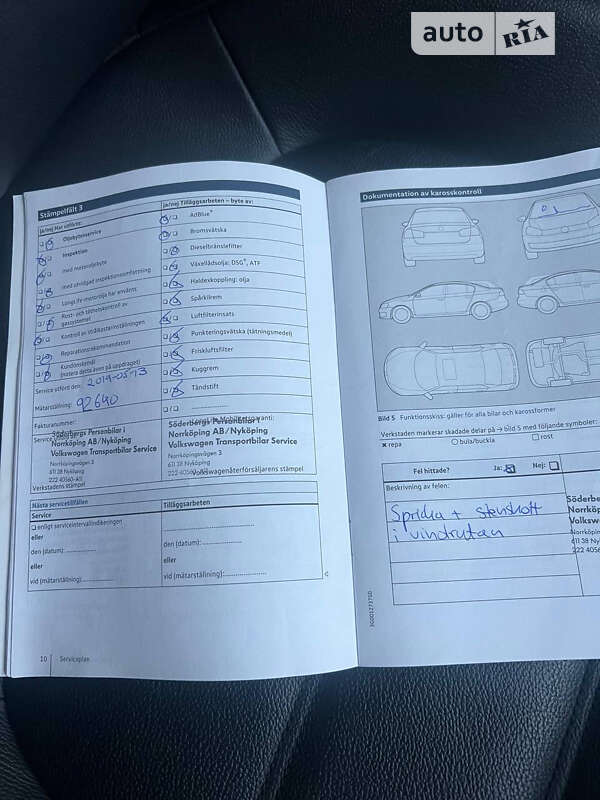 auto RIA
Stämpelfält 3
Ja/nej Har utförts:
Oljebytesservice
Inspektion
med motoroljebyte
med utvidgad inspektionsomfattning
LongLife-motorolja har använts
Rost- och täthetskontroll av
gassystemet
Kontroll av strålkastarinställningen
Reparationsrekommendation
Kundönskemål
(notera detta även på uppdraget)
Service utförd den: 2019-05-13
Mätarställning: 92640
Fakturanummer:
Söderbergs Personbilar i
Norrköping AB/Nyköping
Volkswagen Transportbilar Service
Norrköpingsvägen 3
611 38 Nyköping
Verkstadens stämpel
Ja/nej Tilläggsarbeten – byte av:
AdBlue®
Bromsvätska
Dieselbränslefilter
Växellådsolja: DSG®, ATF
Haldexkoppling: olja
Spårkilrem
Luftfilterinsats
Punkteringsvätska (tätningsmedel)
Friskluftsfilter
Kuggrem
Tändstift
Mobilitetsgaranti:
Söderbergs Personbilar i
Norrköping AB/Nyköping
Volkswagen Transportbilar Service
611 38 Nyköping
Volkswagenåterförsäljarens stämpel
Nästa servicetillfällen
Service
enligt serviceintervallindikeringen
eller
den (datum):
eller
vid (mätarställning):
Tilläggsarbeten
den (datum):
eller
vid (mätarställning):
10 Serviceplan
Dokumentation av karosskontroll
Bild 5 Funktionsskiss: gäller för alla bilar och karossformer
Verkstaden markerar skadade delar på → bild 5 med följande symboler:
× repa ○ bula/buckla □ rost
Fel hittade? Ja: Nej:
Beskrivning av felen:
Spricka + stenskott
i vindrutan
Söderb
Norrköp
Volksw
611 38 Ny
222 4056